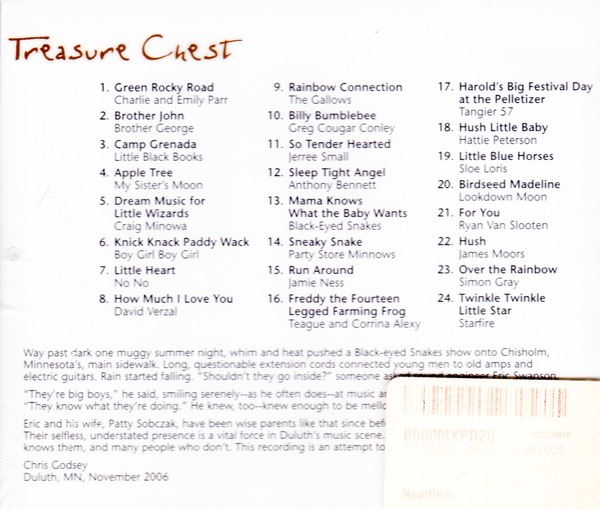 Treasure Chest
1. Green Rocky Road
Charlie and Emily Parr
2. Brother John
Brother George
3. Camp Grenada
Little Black Books
4. Apple Tree
My Sister's Moon
5. Dream Music for
Little Wizards
Craig Minowa
6. Knick Knack Paddy Wack
Boy Girl Boy Girl
7. Little Heart
No No
8. How Much I Love You
David Verzal
9. Rainbow Connection
The Gallows
10. Billy Bumblebee
Greg Cougar Conley
11. So Tender Hearted
Jerree Small
12. Sleep Tight Angel
Anthony Bennett
13. Mama Knows
What the Baby Wants
Black-Eyed Snakes
14. Sneaky Snake
Party Store Minnows
15. Run Around
Jamie Ness
16. Freddy the Fourteen
Legged Farming Frog
Teague and Corrina Alexy
17. Harold's Big Festival Day
at the Pelletizer
Tangier 57
18. Hush Little Baby
Hattie Peterson
19. Little Blue Horses
Sloe Loris
20. Birdseed Madeline
Lookdown Moon
21. For You
Ryan Van Slooten
22. Hush
James Moors
23. Over the Rainbow
Simon Gray
24. Twinkle Twinkle
Little Star
Starfire
Way past dark one muggy summer night, whim and heat pushed a Black-eyed Snakes show onto Chisholm,
Minnesota's, main sidewalk. Long, questionable extension cords connected young men to old amps and
electric guitars. Rain started falling. "Shouldn't they go inside?" someone asked sound engineer Eric Swanson.
"They're big boys," he said, smiling serenely--as he often does--at music
"They know what they're doing." He knew, too--knew enough to be
Eric and his wife, Patty Sobczak, have been wise parents like that since
Their selfless, understated presence is a vital force in Duluth's music scene.
knows them, and many people who don't. This recording is an attempt to
Chris Godsey
Duluth, MN, November 2006
B000MXPD20
NewItem